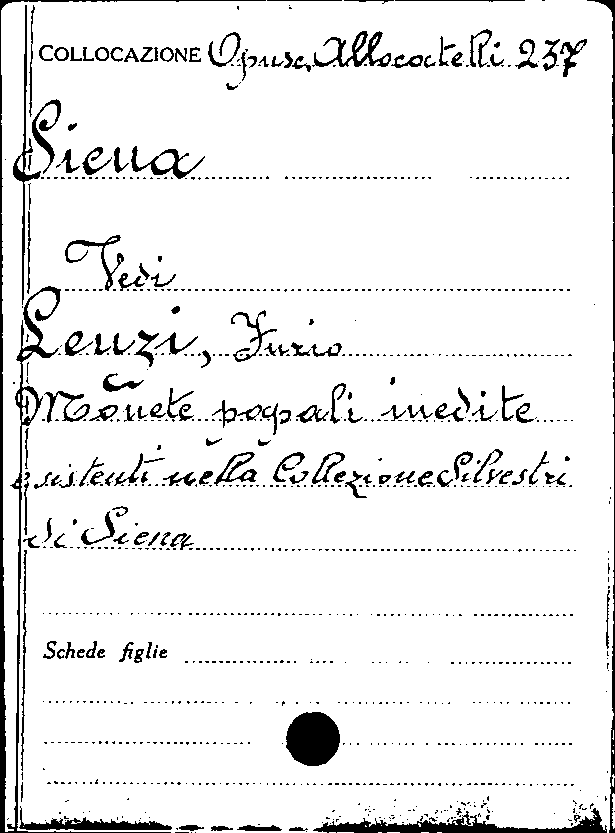 COLLOCAZIONE Opusc. Allocatelli 237
Siena
Vedi
Lenzi, Furio
Monete papali inedite
esistenti nella Collezione Silvestri
di Siena
Schede figlie